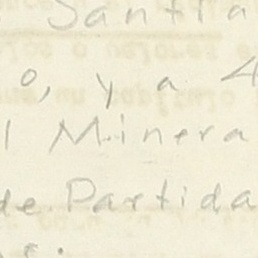 Santia
o, y a 4
l Minera
de Partida